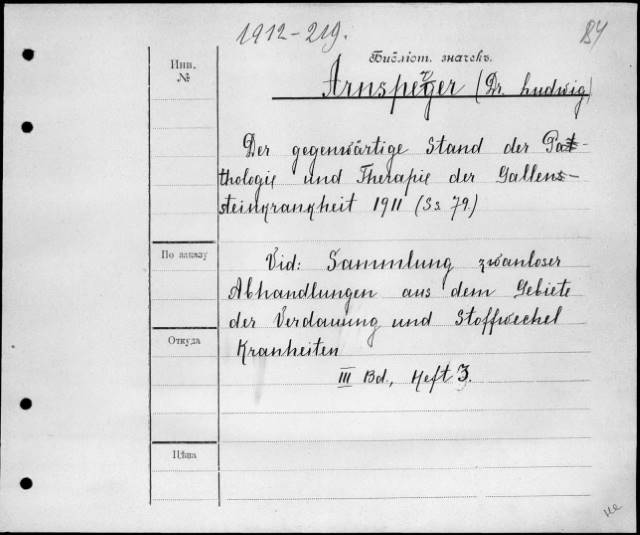 1912-219.
84
Инв.
№
Библіот. значекъ.
Arnsperger (Dr. Ludwig)
Der gegenwärtige Stand der Pat-
thologie und Therapie der Gallens-
steinkrankheit 1911 (Ss 79.)
По заказу
Vid: Sammlung zwanloser
Abhandlungen aus dem Gebiete
der Verdauung und Stoffwechel
Откуда
Kranheiten
III Bd., Heft 3.
Цѣна